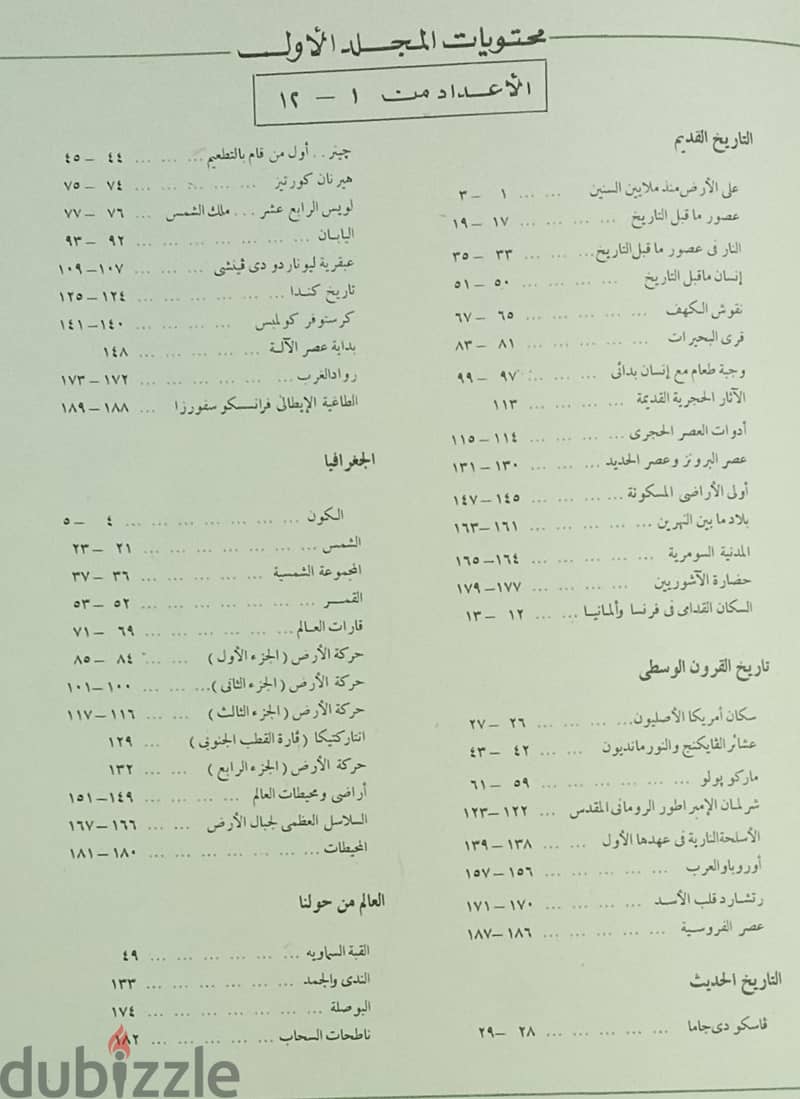 محتويات المجلد الأول
الأعداد من ١ – ١٢
التاريخ القديم
على الأرض منذ ملايين السنين ... ... ١ – ٣
عصور ما قبل التاريخ ... ... ... ... ١٧ – ١٩
النار فى عصور ما قبل التاريخ ... ... ... ٣٣ – ٣٥
إنسان ماقبل التاريخ ... ... ... ... ٥٠ – ٥١
نقوش الكهف ... ... ... ... ... ٦٥ – ٦٧
قرى البحيرات ... ... ... ... ... ٨١ – ٨٣
وجبة طعام مع إنسان بدائى ... ... ... ٩٧ – ٩٩
الآثار الحجرية القديمة ... ... ... ... ١١٣
أدوات العصر الحجرى ... ... ... ... ١١٤ – ١١٥
عصر البرونز وعصر الحديد ... ... ... ١٣٠ – ١٣١
أولى الأراضى المسكونة ... ... ... ... ١٤٥ – ١٤٧
بلاد ما بين النهرين ... ... ... ... ... ١٦١ – ١٦٣
المدنية السومرية ... ... ... ... ١٦٤ – ١٦٥
حضارة الآشوريين ... ... ... ... ١٧٧ – ١٧٩
السكان القدامى فى فرنسا وألمانيا ... ... ١٢ – ١٣
تاريخ القرون الوسطى
سكان أمريكا الأصليون ... ... ... ... ٢٦ – ٢٧
عشائر الڤايكنج والنورمانديون ... ... ٤٢ – ٤٣
ماركو پولو ... ... ... ... ... ... ٥٩ – ٦١
شرلمان الإمبراطور الرومانى المقدس ... ١٢٢ – ١٢٣
الأسلحة النارية فى عهدها الأول ... ... ١٣٨ – ١٣٩
أوروبا والعرب ... ... ... ... ... ١٥٦ – ١٥٧
رتشارد قلب الأسد ... ... ... ... ١٧٠ – ١٧١
عصر الفروسية ... ... ... ... ... ١٨٦ – ١٨٧
التاريخ الحديث
ڤاسكو دى جاما ... ... ... ... ... ٢٨ – ٢٩
چينر .. أول من قام بالتطعيم ... ... ... ٤٤ – ٤٥
هيرنان كورتيز ... ... ... ... ... ٧٤ – ٧٥
لويس الرابع عشر ... ملك الشمس ... ٧٦ – ٧٧
اليابان ... ... ... ... ... ... ... ٩٢ – ٩٣
عبقرية ليوناردو دى ڤينشى ... ... ... ١٠٧ – ١٠٩
تاريخ كندا ... ... ... ... ... ... ١٢٤ – ١٢٥
كرستوفر كولمبس ... ... ... ... ١٤٠ – ١٤١
بداية عصر الآلة ... ... ... ... ... ١٤٨
رواد الغرب ... ... ... ... ... ... ١٧٢ – ١٧٣
الطاغية الإيطالى فرانسسكو سفورزا ... ١٨٨ – ١٨٩
الجغرافيا
الكون ... ... ... ... ... ... ... ٤ – ٥
الشمس ... ... ... ... ... ... ... ٢١ – ٢٣
المجموعة الشمسية ... ... ... ... ... ٣٦ – ٣٧
القمر ... ... ... ... ... ... ... ٥٢ – ٥٣
قارات العالم ... ... ... ... ... ... ٦٩ – ٧١
حركة الأرض ( الجزء الأول ) ... ... ٨٤ – ٨٥
حركة الأرض ( الجزء الثانى ) ... ... ١٠٠ – ١٠١
حركة الأرض ( الجزء الثالث ) ... ... ١١٦ – ١١٧
انتاركتيكا ( قارة القطب الجنوبى ) ... ١٢٩
حركة الأرض ( الجزء الرابع ) ... ... ١٣٢
أراضى ومحيطات العالم ... ... ... ... ١٤٩ – ١٥١
السلاسل العظمى لجبال الأرض ... ... ١٦٦ – ١٦٧
المحيطات ... ... ... ... ... ... ... ١٨٠ – ١٨١
العالم من حولنا
القبة السماويه ... ... ... ... ... ... ٤٩
الندى والجمد ... ... ... ... ... ... ١٣٣
البوصلة ... ... ... ... ... ... ١٧٤
ناطحات السحاب ... ... ... ... ... ١٨٢
dubizzle